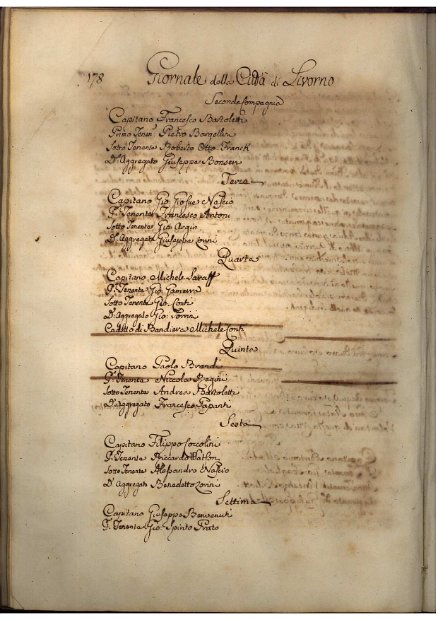 178 Giornale della Città di Livorno
Seconda Compagnia
Capitano Francesco Bartoletti
Primo Ten. Pietro Bargellini
Sotto Tenente Roberto Otto Franck
D. Aggregato Giuseppe Bonsen
Terza
Capitano Gio.
G. Tenente Francesco Antoni
Sotto Tenente Gio.
D. Aggregato Giuseppe
Quarta
Capitano Michele
G. Tenente Gio.
Sotto Tenente Gio. Conti
D. Aggregato Gio.
Cadetto di Bandiera Michele Conti
Quinta
Capitano Paolo Brandi
G. Tenente Niccola
Sotto Tenente Andrea Bartoletti
D. Aggregato Francesco
Sesta
Capitano Filippo
G. Tenente Riccardo
Sotto Tenente Alessandro
D. Aggregato Benedetto
Settima
Capitano Giuseppe Benvenuti
G. Tenente Gio. Spirito Prato